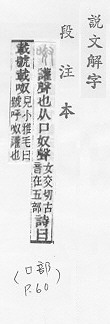 說文解字
段注本
讙聲也从口奴聲女交切古音在五部詩曰
載號載呶見小雅毛曰號呼呶讙也
(口部
P.60)